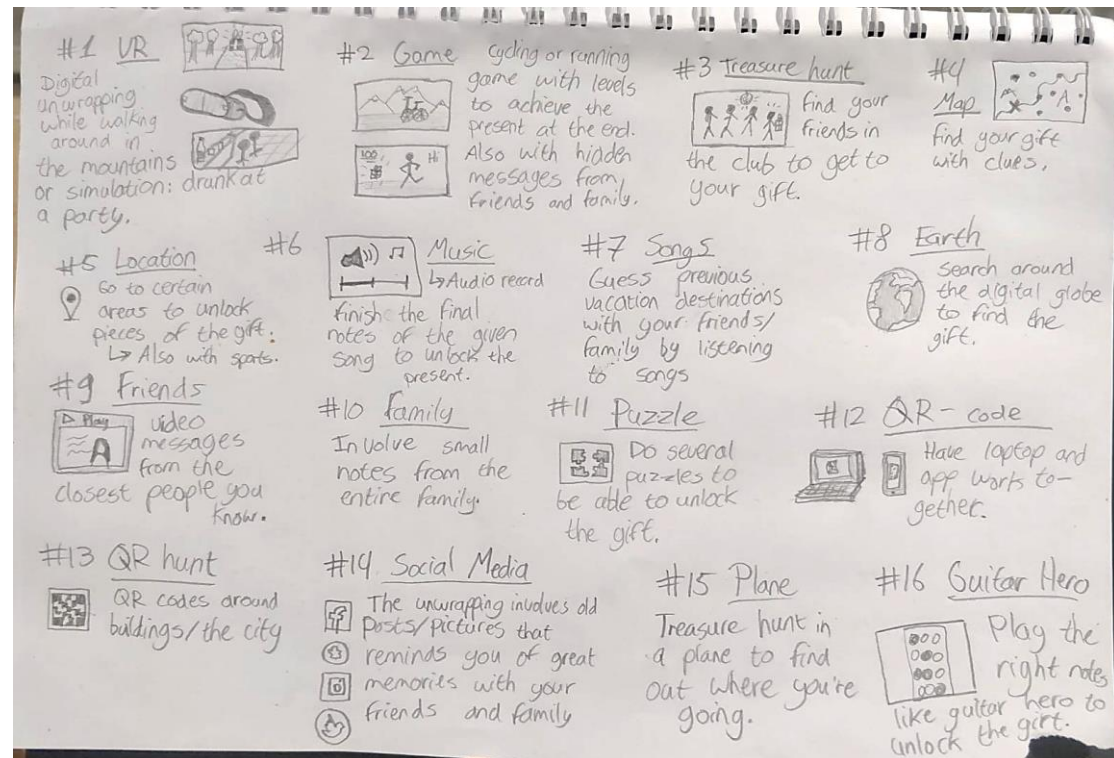 #1 VR
Digital
unwrapping
while walking
around in
the mountains
or simulation: drunk at
a party.
#2 Game cycling or running
game with levels
to achieve the
present at the end.
Also with hidden
messages from
friends and family.
100
Hi
#3 Treasure hunt
find your
friends in
the club to get to
your gift.
#4
Map
find your gift
with clues.
#5 Location
Go to certain
areas to unlock
pieces of the gift.
↳ Also with spots.
#6 Music
↳ Audio record
finish the final
notes of the given
song to unlock the
present.
#7 Songs
Guess previous
vacation destinations
with your friends/
family by listening
to songs
#8 Earth
Search around
the digital globe
to find the
gift.
#9 Friends
Play
A
video
messages
from the
closest people you
know.
#10 family
Involve small
notes from the
entire family.
#11 Puzzle
Do several
puzzles to
be able to unlock
the gift.
#12 QR-code
Have laptop and
app works to-
gether.
#13 QR hunt
QR codes around
buildings/the city
#14 Social Media
The unwrapping involves old
posts/pictures that
reminds you of great
memories with your
friends and family
#15 Plane
Treasure hunt in
a plane to find
out where you're
going.
#16 Guitar Hero
Play the
right notes
like guitar hero to
unlock the gift.